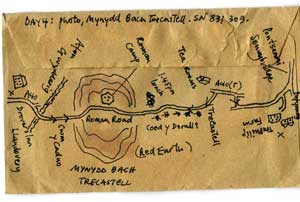 DAY 4: photo, Mynydd Bach Trecastell. SN 831 309.
A40
Afon
Gwydderig
Roman
Camp
Tea Rooms
A40(T)
Llandovery
Cwm
y Cadno
Roman Road
Coed y Darallt
Trecastell
Farm
(Red Earth)
MYNYDD BACH
TRECASTELL